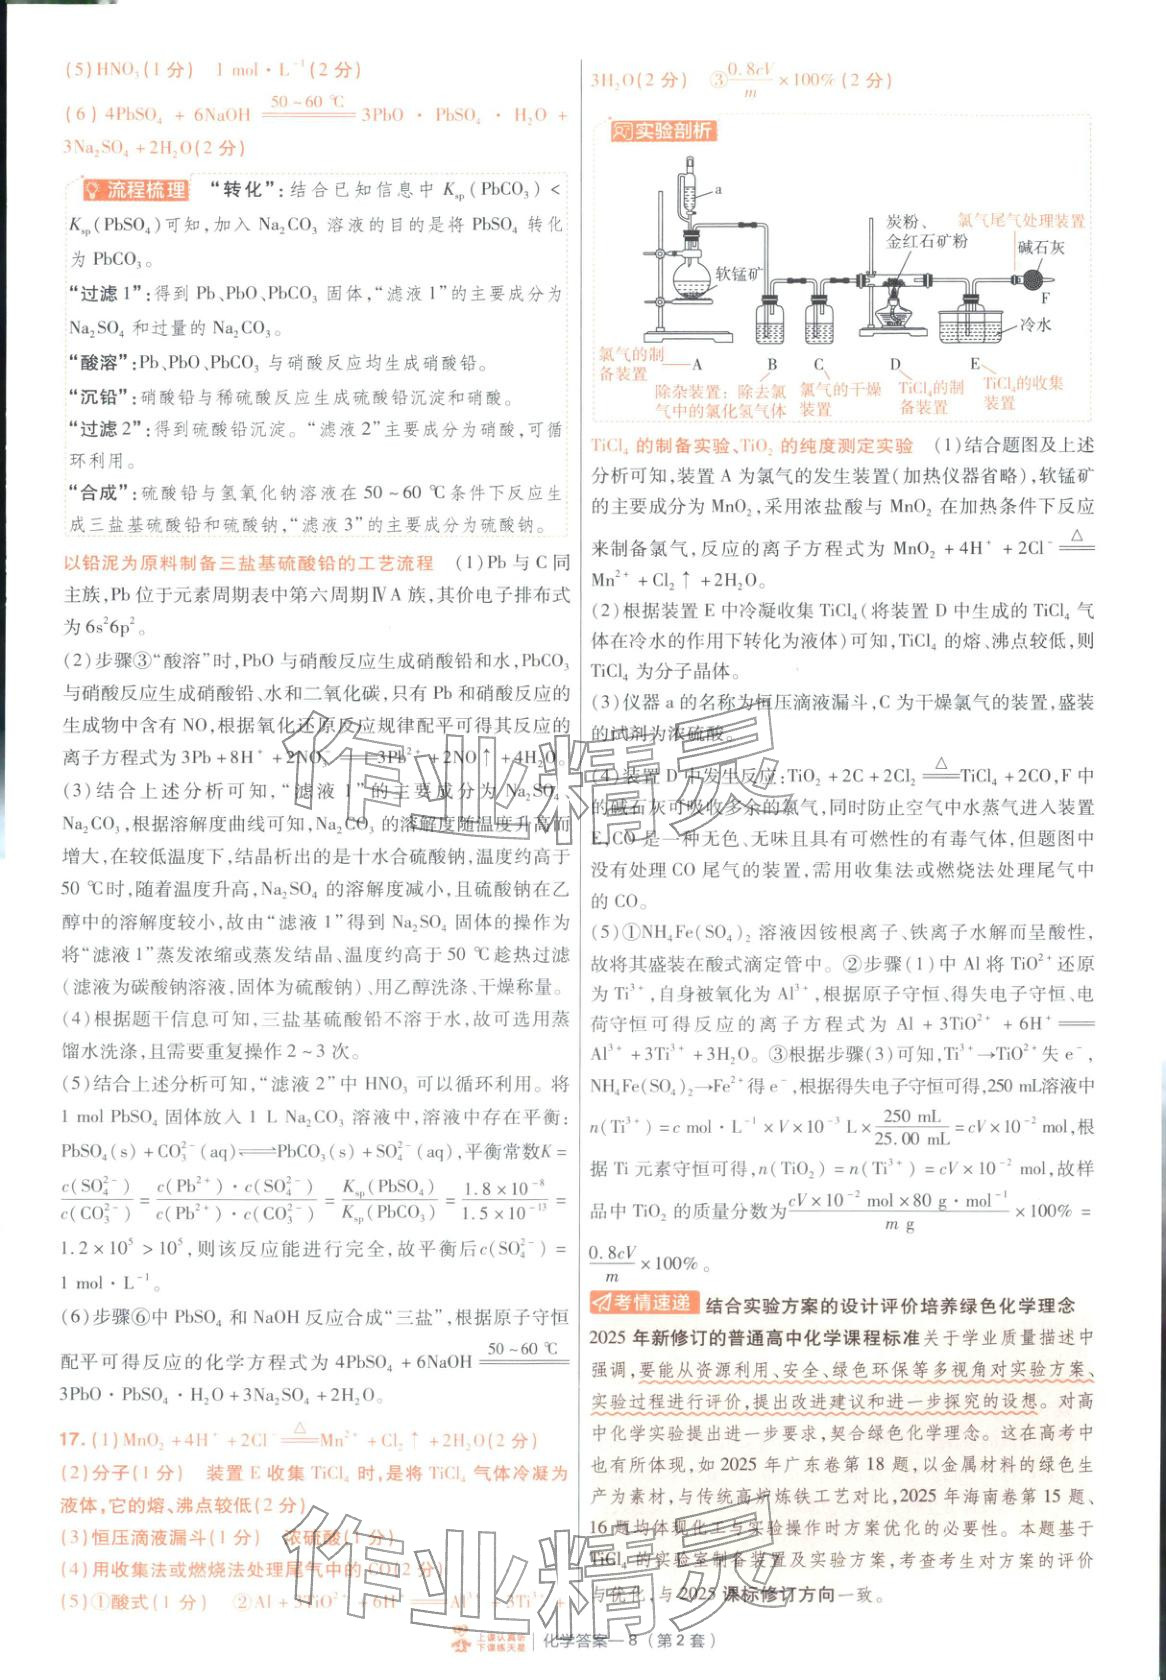 (5)HNO₃(1 分)　1 mol·L⁻¹(2 分)
(6) 4PbSO₄ + 6NaOH ══(50~60 ℃) 3PbO · PbSO₄ · H₂O +
3Na₂SO₄+2H₂O(2 分)
流程梳理 “转化”:结合已知信息中 Ksp(PbCO₃)<
Ksp(PbSO₄)可知,加入 Na₂CO₃ 溶液的目的是将 PbSO₄ 转化
为 PbCO₃。
“过滤 1”:得到 Pb、PbO、PbCO₃ 固体,“滤液 1”的主要成分为
Na₂SO₄ 和过量的 Na₂CO₃。
“酸溶”:Pb、PbO、PbCO₃ 与硝酸反应均生成硝酸铅。
“沉铅”:硝酸铅与稀硫酸反应生成硫酸铅沉淀和硝酸。
“过滤 2”:得到硫酸铅沉淀。“滤液 2”主要成分为硝酸,可循
环利用。
“合成”:硫酸铅与氢氧化钠溶液在 50~60 ℃条件下反应生
成三盐基硫酸铅和硫酸钠,“滤液 3”的主要成分为硫酸钠。
以铅泥为原料制备三盐基硫酸铅的工艺流程　(1)Pb 与 C 同
主族,Pb 位于元素周期表中第六周期ⅣA 族,其价电子排布式
为 6s²6p²。
(2)步骤③“酸溶”时,PbO 与硝酸反应生成硝酸铅和水,PbCO₃
与硝酸反应生成硝酸铅、水和二氧化碳,只有 Pb 和硝酸反应的
生成物中含有 NO,根据氧化还原反应规律配平可得其反应的
离子方程式为 3Pb+8H⁺+2NO₃⁻══3Pb²⁺+2NO↑+4H₂O。
(3)结合上述分析可知,“滤液 1”的主要成分为 Na₂SO₄、
Na₂CO₃,根据溶解度曲线可知,Na₂CO₃ 的溶解度随温度升高而
增大,在较低温度下,结晶析出的是十水合硫酸钠,温度约高于
50 ℃时,随着温度升高,Na₂SO₄ 的溶解度减小,且硫酸钠在乙
醇中的溶解度较小,故由“滤液 1”得到 Na₂SO₄ 固体的操作为
将“滤液 1”蒸发浓缩或蒸发结晶、温度约高于 50 ℃趁热过滤
(滤液为碳酸钠溶液,固体为硫酸钠)、用乙醇洗涤、干燥称量。
(4)根据题干信息可知,三盐基硫酸铅不溶于水,故可选用蒸
馏水洗涤,且需要重复操作 2~3 次。
(5)结合上述分析可知,“滤液 2”中 HNO₃ 可以循环利用。将
1 mol PbSO₄ 固体放入 1 L Na₂CO₃ 溶液中,溶液中存在平衡:
PbSO₄(s)+CO₃²⁻(aq)⇌PbCO₃(s)+SO₄²⁻(aq),平衡常数K=
c(SO₄²⁻)/c(CO₃²⁻) = c(Pb²⁺)·c(SO₄²⁻)/c(Pb²⁺)·c(CO₃²⁻) = Ksp(PbSO₄)/Ksp(PbCO₃) = 1.8×10⁻⁸/1.5×10⁻¹³ =
1.2×10⁵>10⁵,则该反应能进行完全,故平衡后c(SO₄²⁻)=
1 mol·L⁻¹。
(6)步骤⑥中 PbSO₄ 和 NaOH 反应合成“三盐”,根据原子守恒
配平可得反应的化学方程式为 4PbSO₄+6NaOH ══(50~60 ℃)
3PbO·PbSO₄·H₂O+3Na₂SO₄+2H₂O。
17.(1)MnO₂+4H⁺+2Cl⁻══(△)Mn²⁺+Cl₂↑+2H₂O(2 分)
(2)分子(1 分)　装置 E 收集 TiCl₄ 时,是将 TiCl₄ 气体冷凝为
液体,它的熔、沸点较低(2 分)
(3)恒压滴液漏斗(1 分)　浓硫酸(1 分)
(4)用收集法或燃烧法处理尾气中的 CO(2 分)
(5)①酸式(1 分)　②Al+3TiO²⁺+6H⁺══Al³⁺+3Ti³⁺+
3H₂O(2 分)　③0.8cV/m×100%(2 分)
实验剖析
a
软锰矿
炭粉、
金红石矿粉
氯气尾气处理装置
碱石灰
F
冷水
氯气的制
备装置
A
B
C
D
E
除杂装置:除去氯
气中的氯化氢气体
氯气的干燥
装置
TiCl₄的制
备装置
TiCl₄的收集
装置
TiCl₄ 的制备实验、TiO₂ 的纯度测定实验　(1)结合题图及上述
分析可知,装置 A 为氯气的发生装置(加热仪器省略),软锰矿
的主要成分为 MnO₂,采用浓盐酸与 MnO₂ 在加热条件下反应
来制备氯气,反应的离子方程式为 MnO₂+4H⁺+2Cl⁻══(△)
Mn²⁺+Cl₂↑+2H₂O。
(2)根据装置 E 中冷凝收集 TiCl₄(将装置 D 中生成的 TiCl₄ 气
体在冷水的作用下转化为液体)可知,TiCl₄ 的熔、沸点较低,则
TiCl₄ 为分子晶体。
(3)仪器 a 的名称为恒压滴液漏斗,C 为干燥氯气的装置,盛装
的试剂为浓硫酸。
(4)装置 D 中发生反应:TiO₂+2C+2Cl₂══(△)TiCl₄+2CO,F 中
的碱石灰可吸收多余的氯气,同时防止空气中水蒸气进入装置
E,CO 是一种无色、无味且具有可燃性的有毒气体,但题图中
没有处理 CO 尾气的装置,需用收集法或燃烧法处理尾气中
的 CO。
(5)①NH₄Fe(SO₄)₂ 溶液因铵根离子、铁离子水解而呈酸性,
故将其盛装在酸式滴定管中。②步骤(1)中 Al 将 TiO²⁺还原
为 Ti³⁺,自身被氧化为 Al³⁺,根据原子守恒、得失电子守恒、电
荷守恒可得反应的离子方程式为 Al+3TiO²⁺+6H⁺══
Al³⁺+3Ti³⁺+3H₂O。③根据步骤(3)可知,Ti³⁺→TiO²⁺失 e⁻,
NH₄Fe(SO₄)₂→Fe²⁺得 e⁻,根据得失电子守恒可得,250 mL溶液中
n(Ti³⁺)=c mol·L⁻¹×V×10⁻³ L×250 mL/25.00 mL=cV×10⁻² mol,根
据 Ti 元素守恒可得,n(TiO₂)=n(Ti³⁺)=cV×10⁻² mol,故样
品中 TiO₂ 的质量分数为cV×10⁻² mol×80 g·mol⁻¹/m g×100%=
0.8cV/m×100%。
考情速递 结合实验方案的设计评价培养绿色化学理念
2025 年新修订的普通高中化学课程标准关于学业质量描述中
强调,要能从资源利用、安全、绿色环保等多视角对实验方案、
实验过程进行评价,提出改进建议和进一步探究的设想。对高
中化学实验提出进一步要求,契合绿色化学理念。这在高考中
也有所体现,如 2025 年广东卷第 18 题,以金属材料的绿色生
产为素材,与传统高炉炼铁工艺对比,2025 年海南卷第 15 题、
16 题均体现化工与实验操作时方案优化的必要性。本题基于
TiCl₄ 的实验室制备装置及实验方案,考查考生对方案的评价
与优化,与 2025 课标修订方向一致。
作业精灵
作业精灵
上课认真听
下课练天星
化学答案—8(第 2 套)